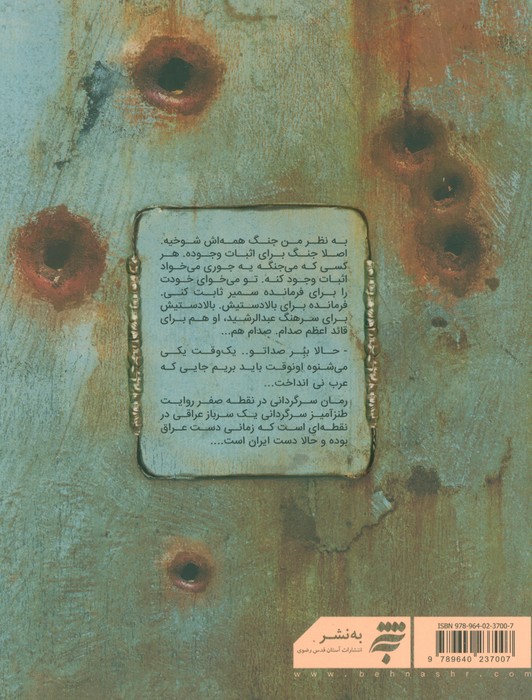 به نظر من جنگ همه‌اش شوخیه.
اصلا جنگ برای اثبات وجوده. هر
کسی که می‌جنگه یه جوری می‌خواد
اثبات وجود کنه. تو می‌خوای خودت
را برای فرمانده سمیر ثابت کنی.
فرمانده برای بالادستیش. بالادستیش
برای سرهنگ عبدالرشید، او هم برای
قائد اعظم صدام. صدام هم...
- حالا ببُر صداتو.. یک‌وقت یکی
می‌شنوه اونوقت باید بریم جایی که
عرب نی انداخت...
رمان سرگردانی در نقطه صفر روایت
طنزآمیز سرگردانی یک سرباز عراقی در
نقطه‌ای است که زمانی دست عراق
بوده و حالا دست ایران است....
به‌نشر
انتشارات آستان قدس رضوی
ISBN 978-964-02-3700-7
9 789640 237007
www.behnashr.com